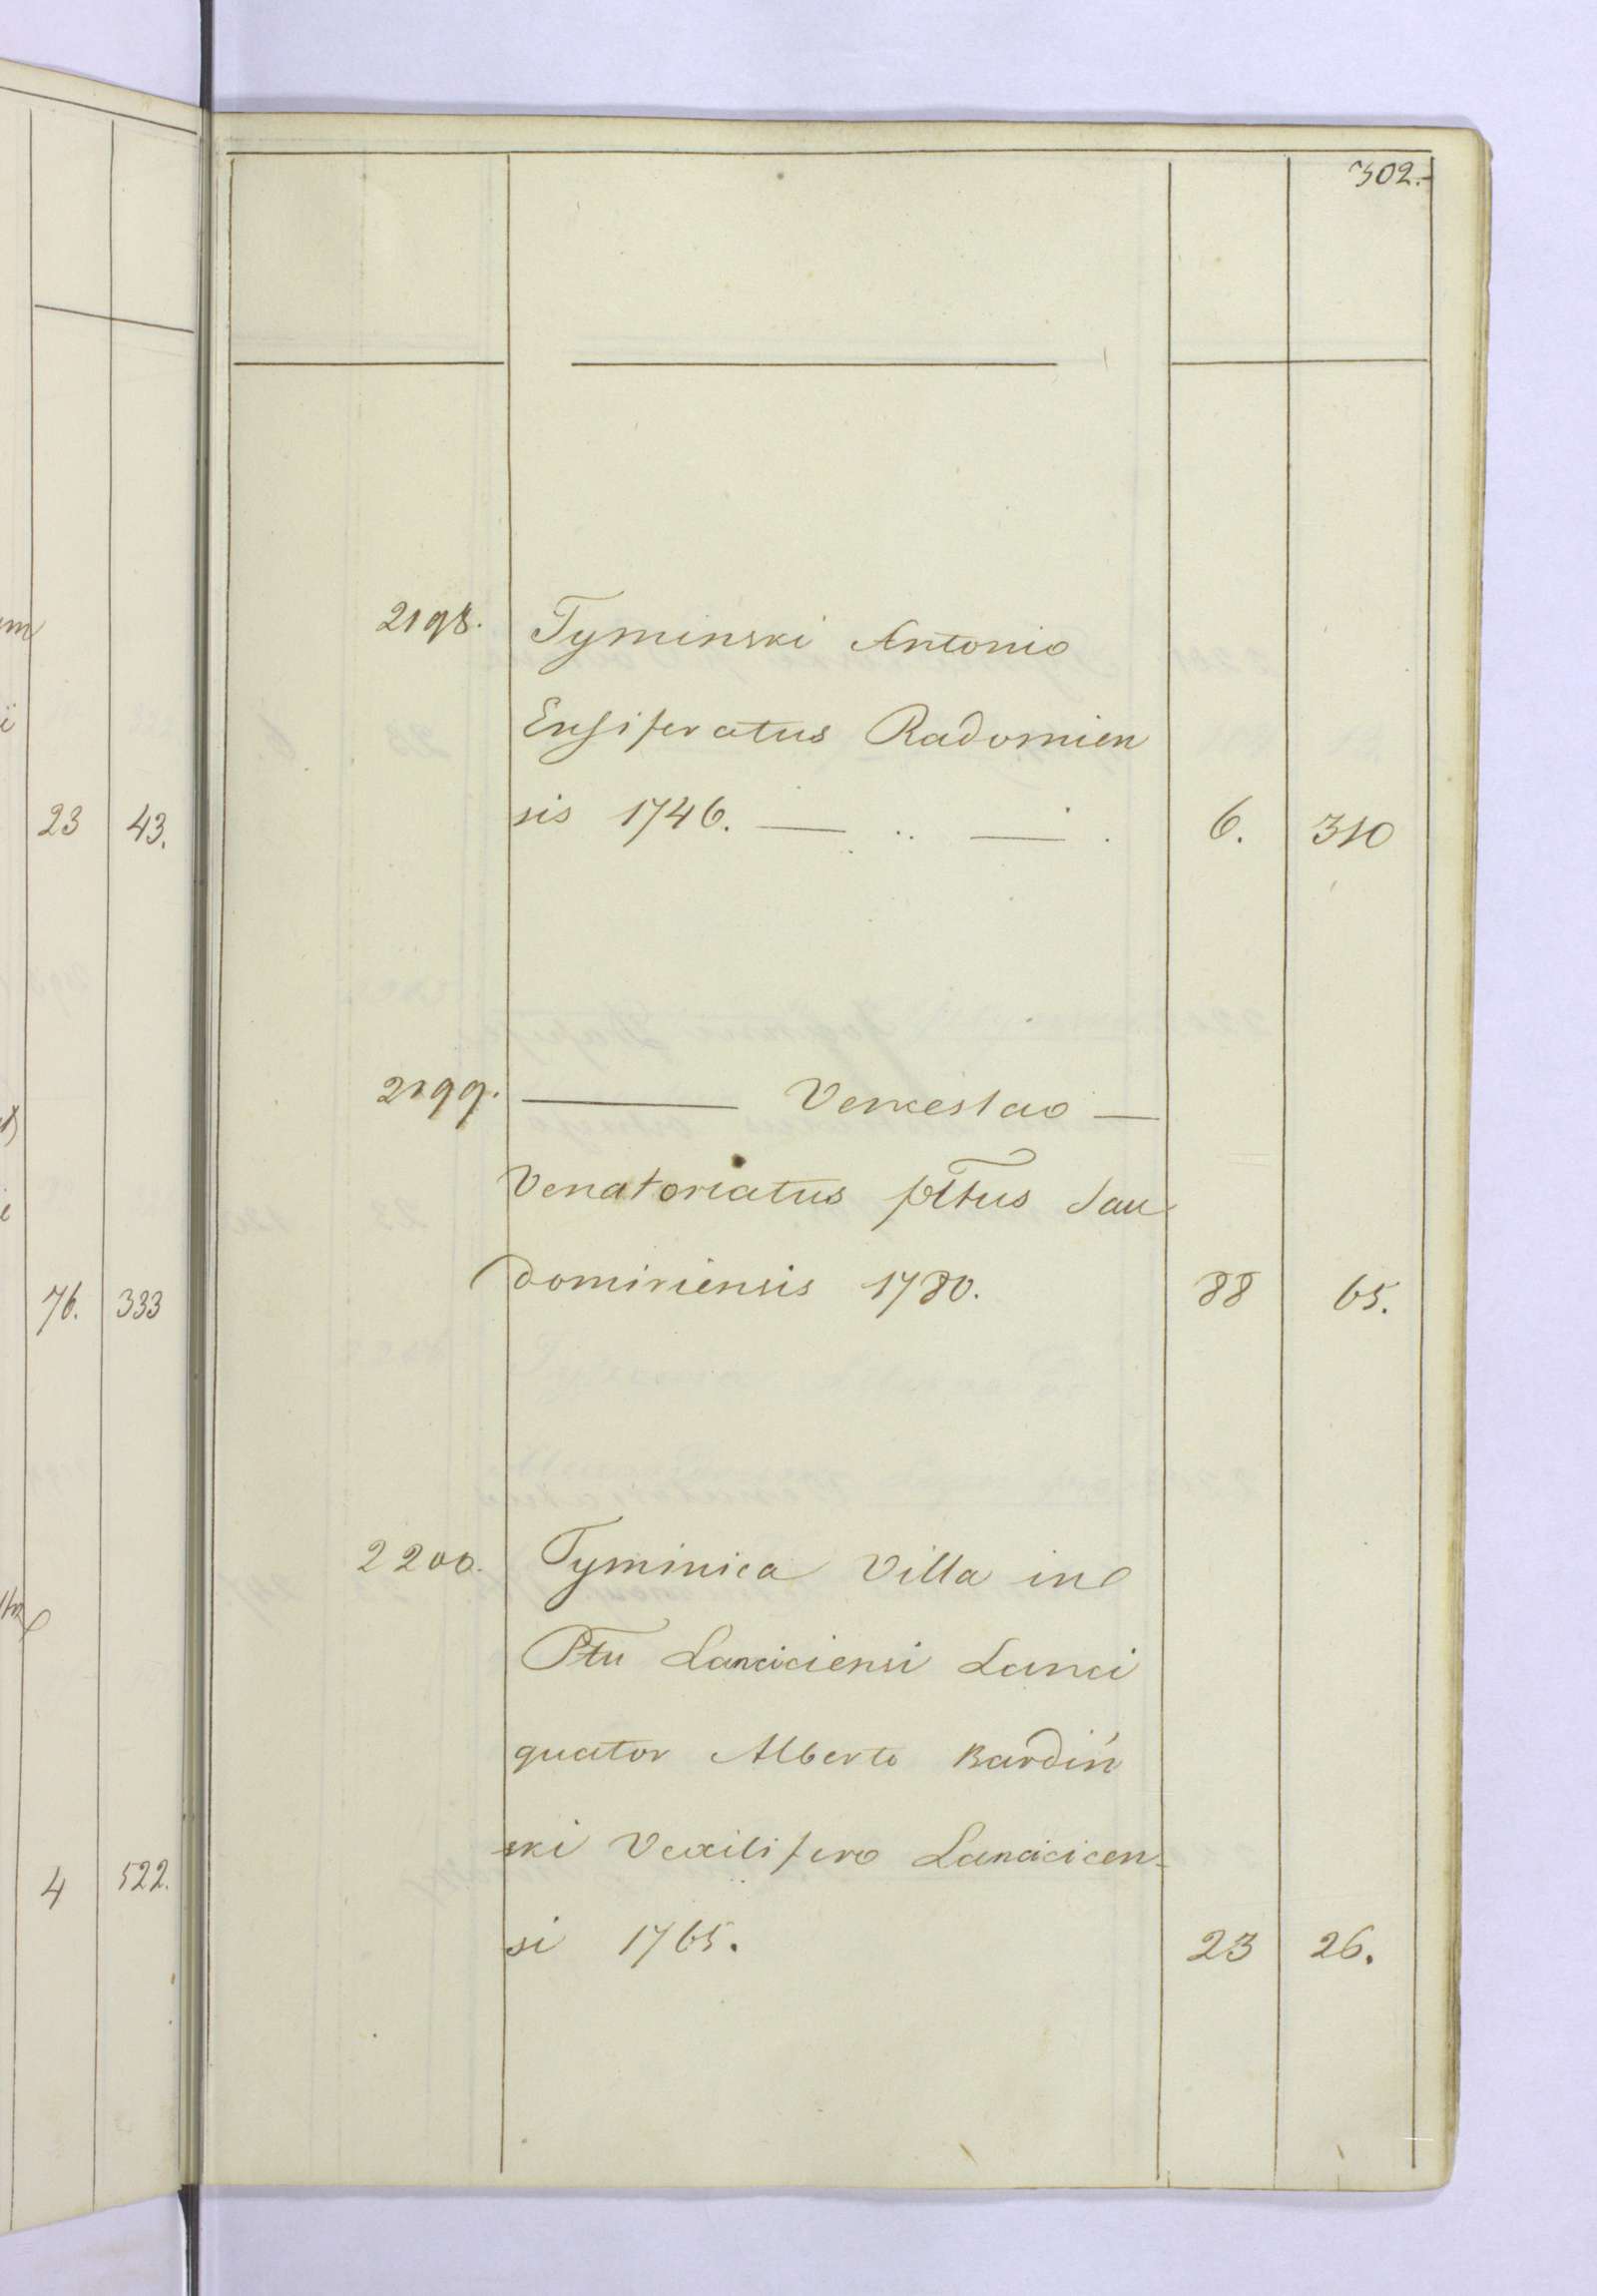 302.
2198. Tyminski Antonio
Ensiferatus Radomien
sis 1746. — .. — . 6. 310
2199. — Venceslao —
Venatoriatus pttus San
domiriensis 1780. 88 65.
2200. Tyminica Villa in
Ptu Lanciciensi Lanci
quator Alberto Bardiń
ski Vexilifero Lancicien-
si 1765. 23 26.
23 43.
76. 333
4 522.